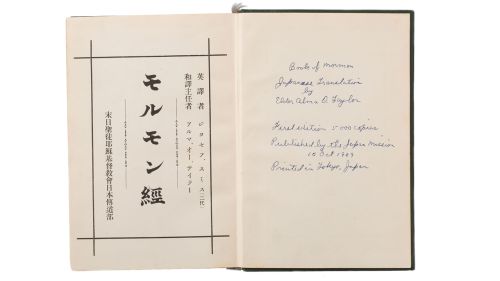 英譯者 ジヨセフ、スミス(二代)
和譯主任者 アルマ、オー、テイラー
モルモン經
末日聖徒耶蘇基督教會日本傳道部
Book of Mormon
Japanese Translation
by
Elder Alma O. Taylor
First edition 5000 copies
Published by the Japan Mission
10 Oct 1909
Printed in Tokyo, Japan